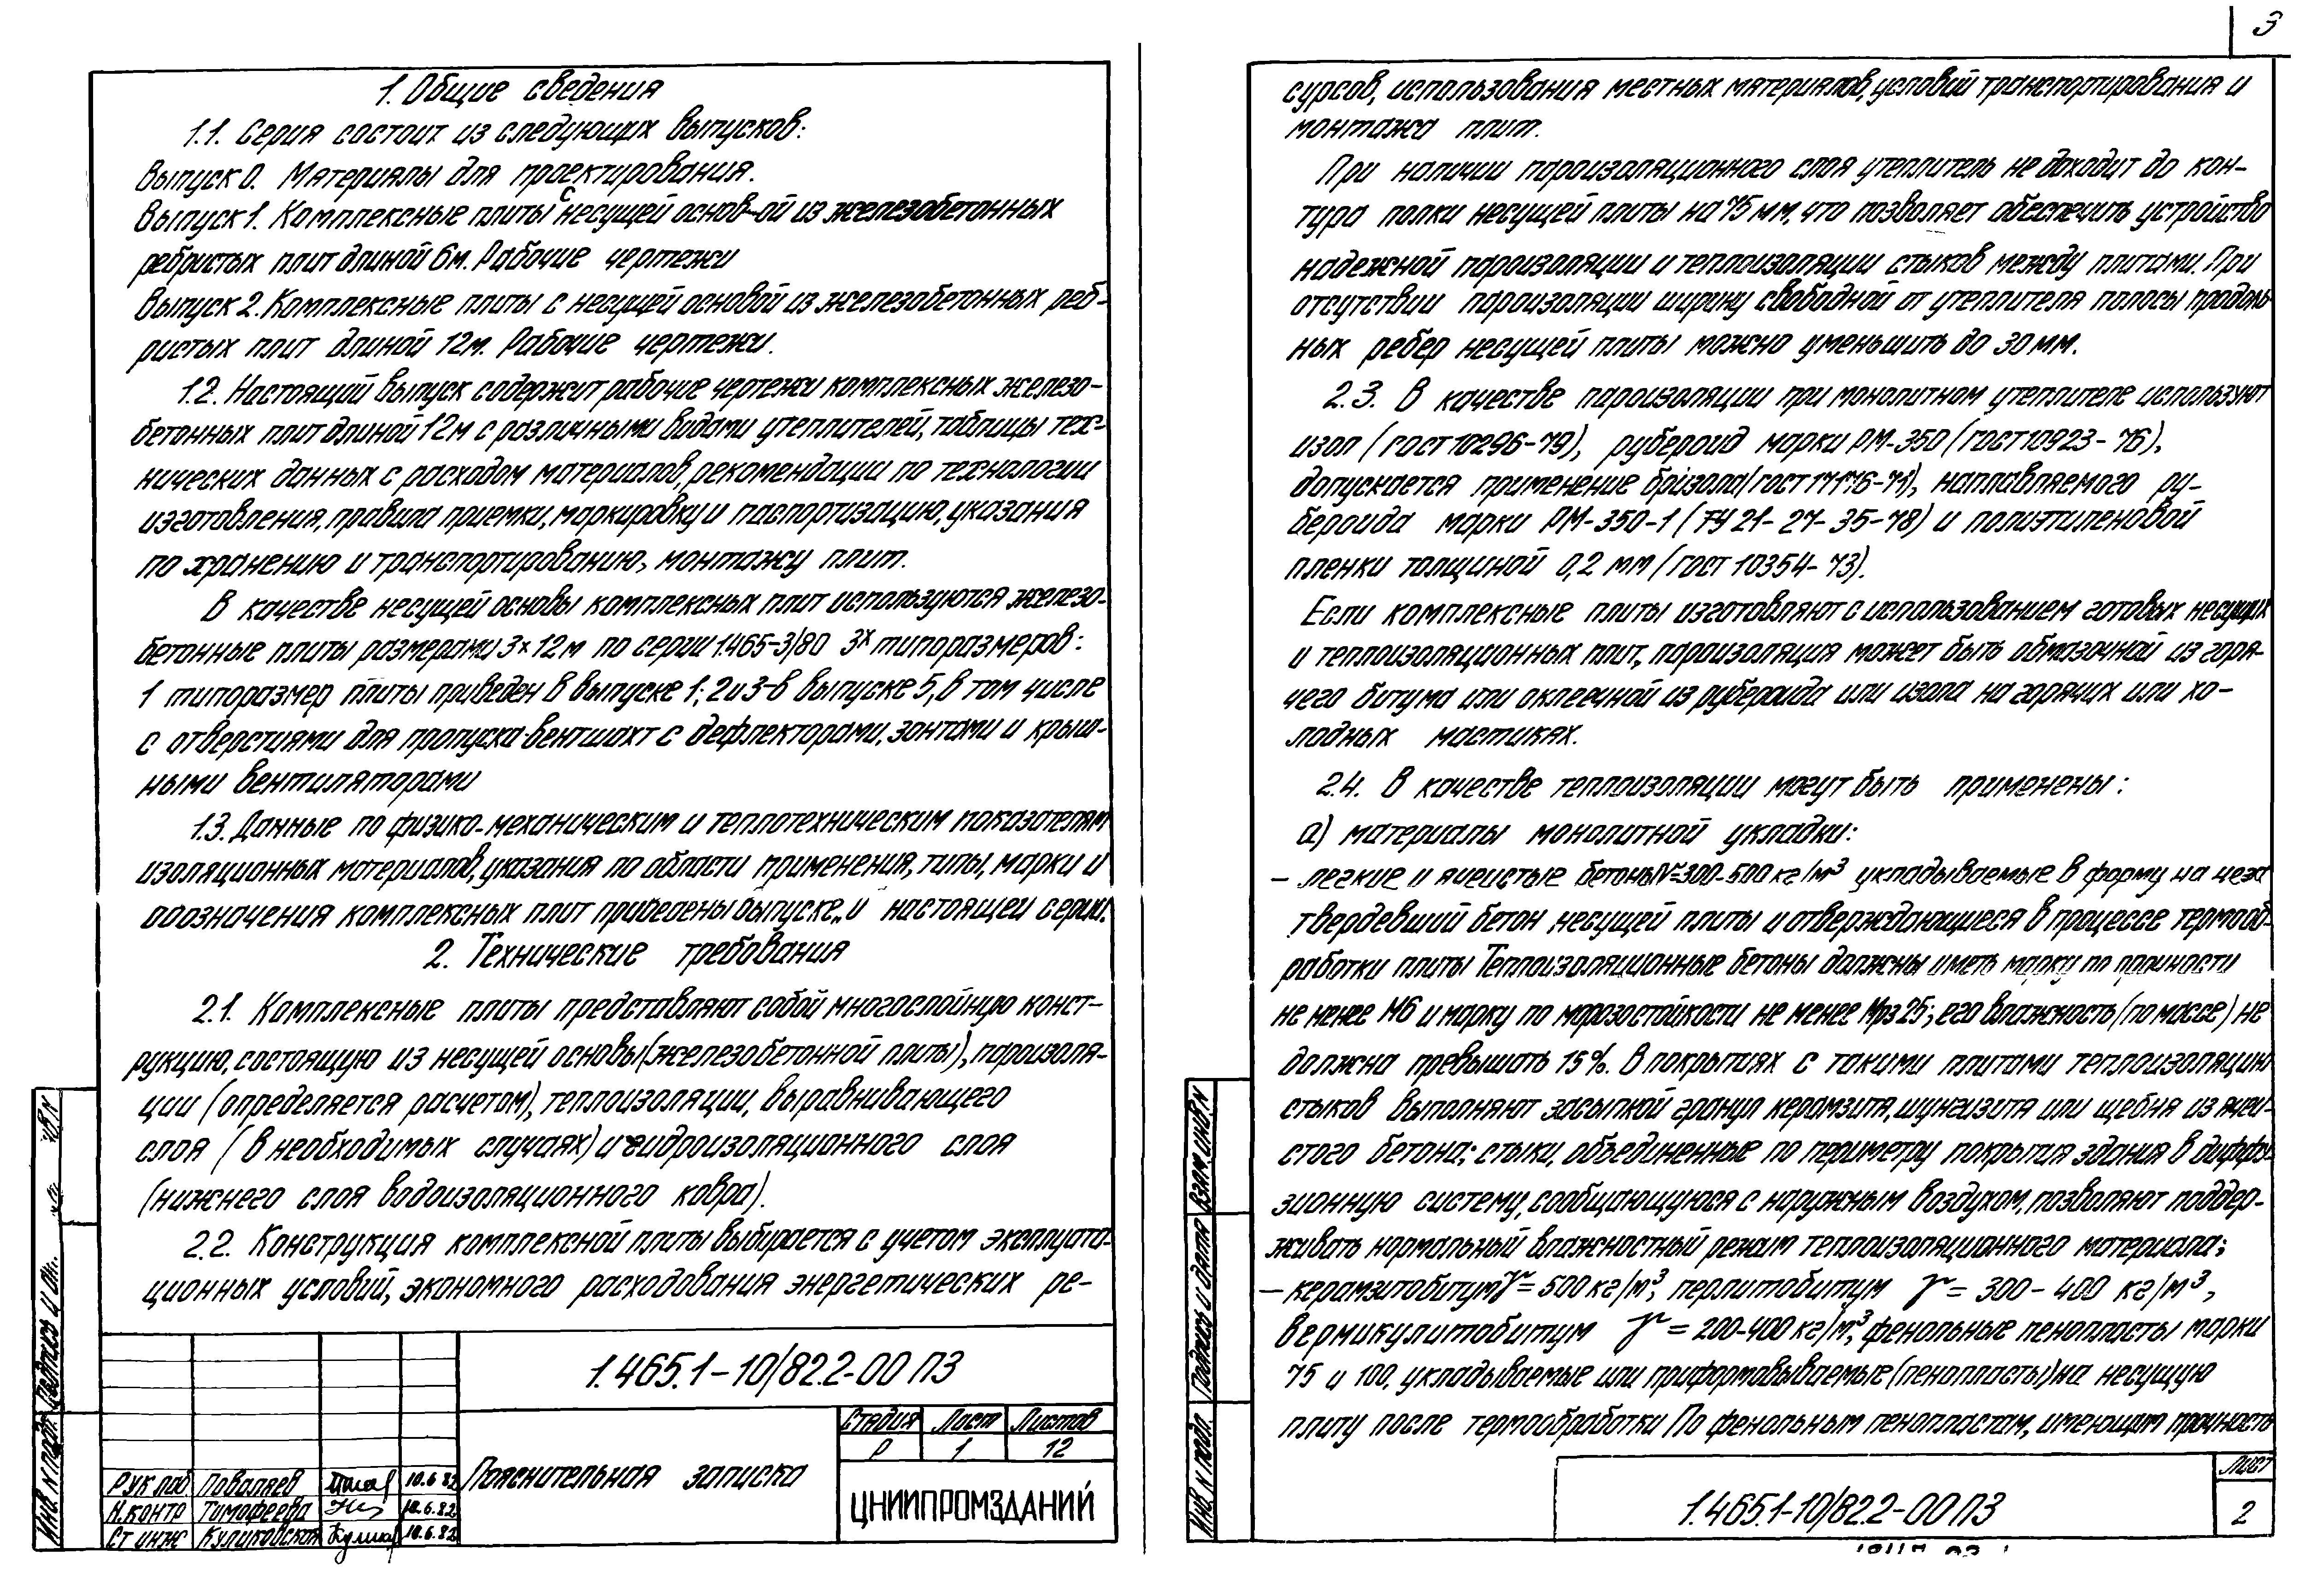 1. Общие сведения
1.1. Серия состоит из следующих выпусков:
Выпуск 0. Материалы для проектирования.
Выпуск 1. Комплексные плиты с несущей основой из железобетонных
ребристых плит длиной 6м. Рабочие чертежи
Выпуск 2. Комплексные плиты с несущей основой из железобетонных реб-
ристых плит длиной 12м. Рабочие чертежи.
1.2. Настоящий выпуск содержит рабочие чертежи комплексных железо-
бетонных плит длиной 12м с различными видами утеплителей, таблицы тех-
нических данных с расходом материалов, рекомендации по технологии
изготовления, правила приемки, маркировку и паспортизацию, указания
по хранению и транспортированию, монтажу плит.
В качестве несущей основы комплексных плит используются железо-
бетонные плиты размерами 3×12м по серии 1.465-3/80 3х типоразмеров:
1 типоразмер плиты приведен в выпуске 1; 2 и 3-в выпуске 5, в том числе
с отверстиями для пропуска вентшахт с дефлекторами, зонтами и крыш-
ными вентиляторами
1.3. Данные по физико-механическим и теплотехническим показателям
изоляционных материалов, указания по области применения, типы, марки и
обозначения комплексных плит приведены в выпуске „0 настоящей серии.
2. Технические требования
2.1. Комплексные плиты представляют собой многослойную конст-
рукцию, состоящую из несущей основы (железобетонной плиты), пароизоля-
ции (определяется расчетом), теплоизоляции, выравнивающего
слоя (в необходимых случаях) и гидроизоляционного слоя
(нижнего слоя водоизоляционного ковра).
2.2. Конструкция комплексной плиты выбирается с учетом эксплуата-
ционных условий, экономного расходования энергетических ре-
1.465.1-10/82.2-00 ПЗ
Пояснительная записка
Стадия Лист Листов
Р 1 12
ЦНИИПРОМЗДАНИЙ
Рук лаб Поваляев 10.6.82
Н.контр Тимофеева 10.6.82
Ст инж Куликовская 10.6.82
Инв. N подл. Подпись и
3
сурсов, использования местных материалов, условий транспортирования и
монтажа плит.
При наличии пароизоляционного слоя утеплитель не доходит до кон-
тура полки несущей плиты на 75 мм, что позволяет обеспечить устройство
надежной пароизоляции и теплоизоляции стыков между плитами. При
отсутствии пароизоляции ширину свободной от утеплителя полосы продоль-
ных ребер несущей плиты можно уменьшить до 30 мм.
2.3. В качестве пароизоляции при монолитном утеплителе используют
изол (ГОСТ 10296-79), рубероид марки РМ-350 (ГОСТ 10923-76),
допускается применение бризола (ГОСТ 17176-71), наплавляемого ру-
бероида марки РМ-350-1 (ТУ 21-27-35-78) и полиэтиленовой
пленки толщиной 0,2 мм (ГОСТ 10354-73).
Если комплексные плиты изготовляют с использованием готовых несущих
и теплоизоляционных плит, пароизоляция может быть обмазочной из горя-
чего битума или оклеечной из рубероида или изола на горячих или хо-
лодных мастиках.
2.4. В качестве теплоизоляции могут быть применены:
а) материалы монолитной укладки:
- легкие и ячеистые бетоны γ=300-500 кг/м³ укладываемые в форму на неза
твердевший бетон несущей плиты и отверждающиеся в процессе термооб-
работки плиты Теплоизоляционные бетоны должны иметь марку по прочности
не менее М6 и марку по морозостойкости не менее Мрз 25; его влажность (по массе) не
должна превышать 15%. В покрытиях с такими плитами теплоизоляцию
стыков выполняют засыпкой гранул керамзита, шунгизита или щебня из ячеи-
стого бетона; стыки, объединенные по периметру покрытия здания в диффу-
зионную систему, сообщающуюся с наружным воздухом, позволяют поддер-
живать нормальный влажностный режим теплоизоляционного материала;
- керамзитобитум γ=500 кг/м³, перлитобитум γ = 300-400 кг/м³,
вермикулитобитум γ = 200-400 кг/м³, фенольные пенопласты марки
75 и 100, укладываемые или приформовываемые (пенопласты) на несущую
плиту после термообработки По фенольным пенопластам, имеющим прочность
1.465.1-10/82.2-00 ПЗ
Лист
2
Инв. N подл. Подпись и дата Взам. инв. N